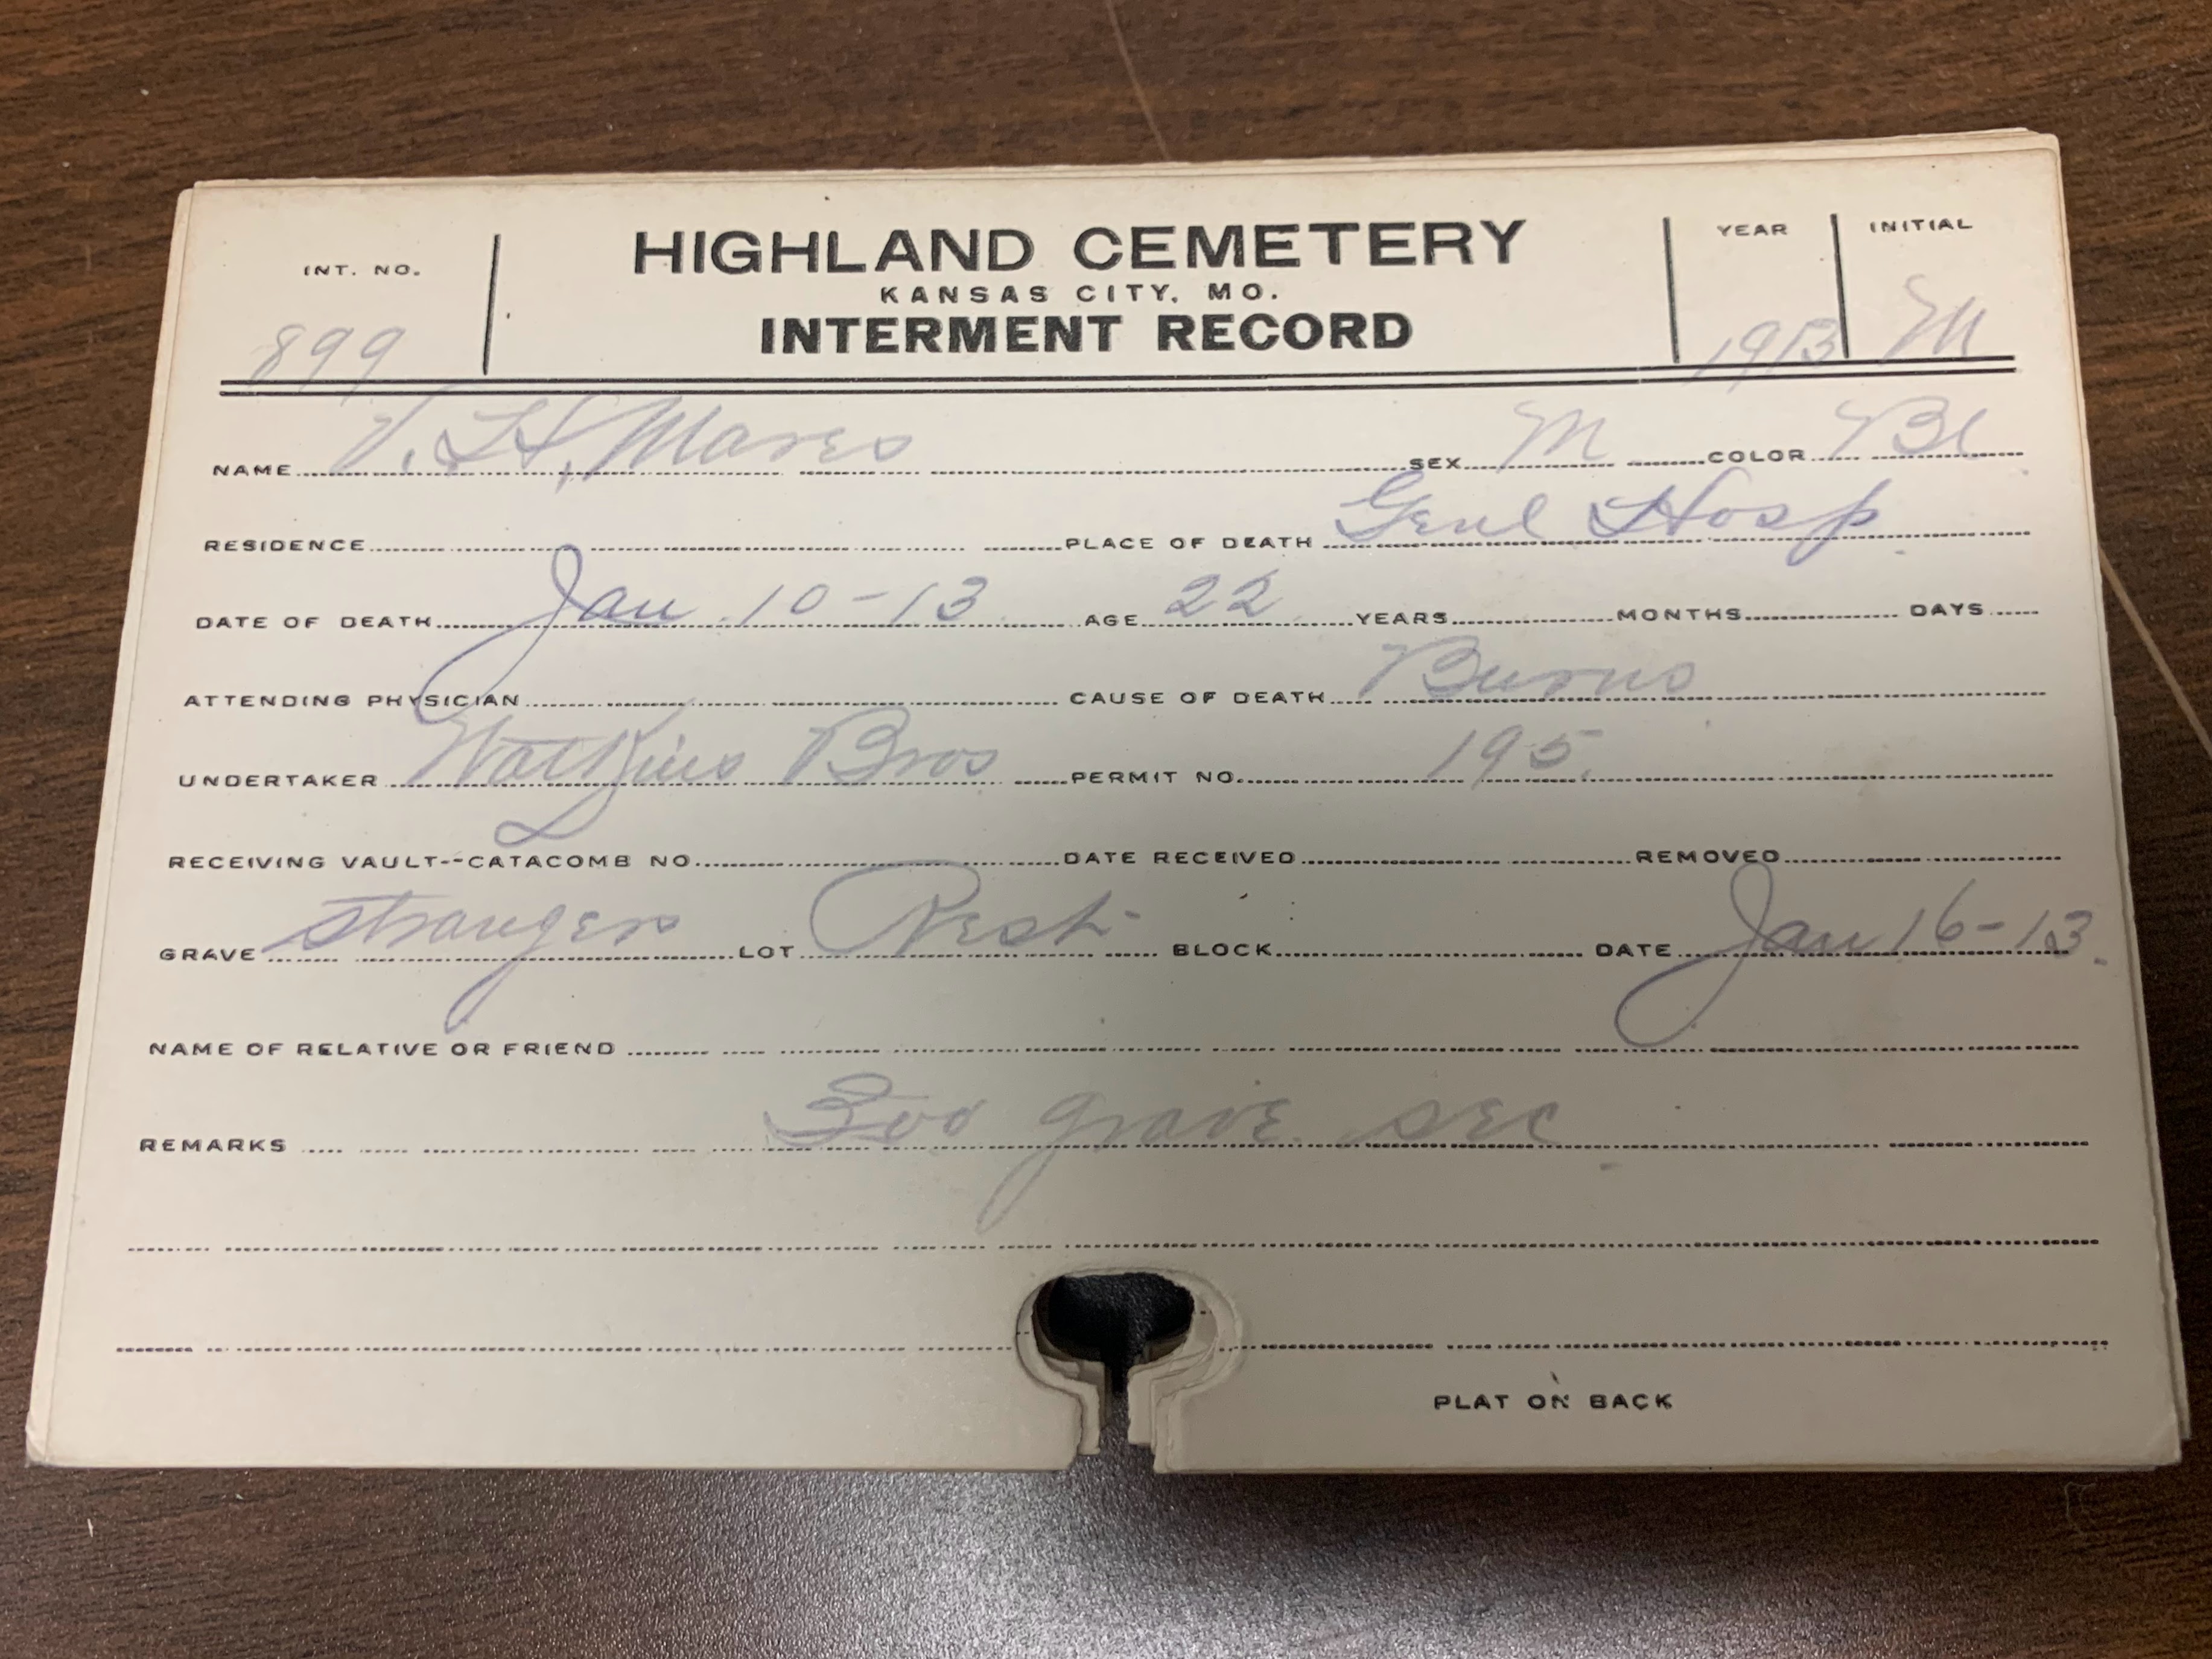 INT. NO. HIGHLAND CEMETERY YEAR INITIAL
KANSAS CITY, MO.
899 INTERMENT RECORD 1913 M
NAME V. H. Mares SEX M COLOR Bl
RESIDENCE PLACE OF DEATH Genl Hosp
DATE OF DEATH Jan 10-13 AGE 22 YEARS MONTHS DAYS
ATTENDING PHYSICIAN CAUSE OF DEATH Burns
UNDERTAKER Watkins Bros PERMIT NO. 195.
RECEIVING VAULT--CATACOMB NO. DATE RECEIVED REMOVED
GRAVE Strangers LOT Rest BLOCK DATE Jan 16-13
NAME OF RELATIVE OR FRIEND
REMARKS 300 grave sec
PLAT ON BACK